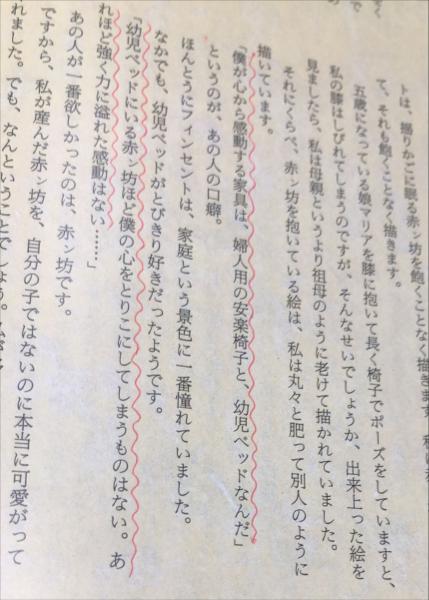 トは、揺りかごに眠る赤ン坊を飽くことなく描きます
て、それも飽くことなく描きます。
五歳になっている娘マリアを膝に抱いて長く椅子でポーズをしていますと、
私の膝はしびれてしまうのですが、そんなせいでしょうか、出来上った絵を
見ましたら、私は母親というより祖母のように老けて描かれていました。
それにくらべ、赤ン坊を抱いている絵は、私は丸々と肥って別人のように
描いています。
「僕が心から感動する家具は、婦人用の安楽椅子と、幼児ベッドなんだ」
というのが、あの人の口癖。
ほんとうにフィンセントは、家庭という景色に一番憧れていました。
なかでも、幼児ベッドがとびきり好きだったようです。
「幼児ベッドにいる赤ン坊ほど僕の心をとりこにしてしまうものはない。あ
れほど強く力に溢れた感動はない……」
あの人が一番欲しかったのは、赤ン坊です。
ですから、私が産んだ赤ン坊を、自分の子ではないのに本当に可愛がって
れました。でも、なんということでしょう。